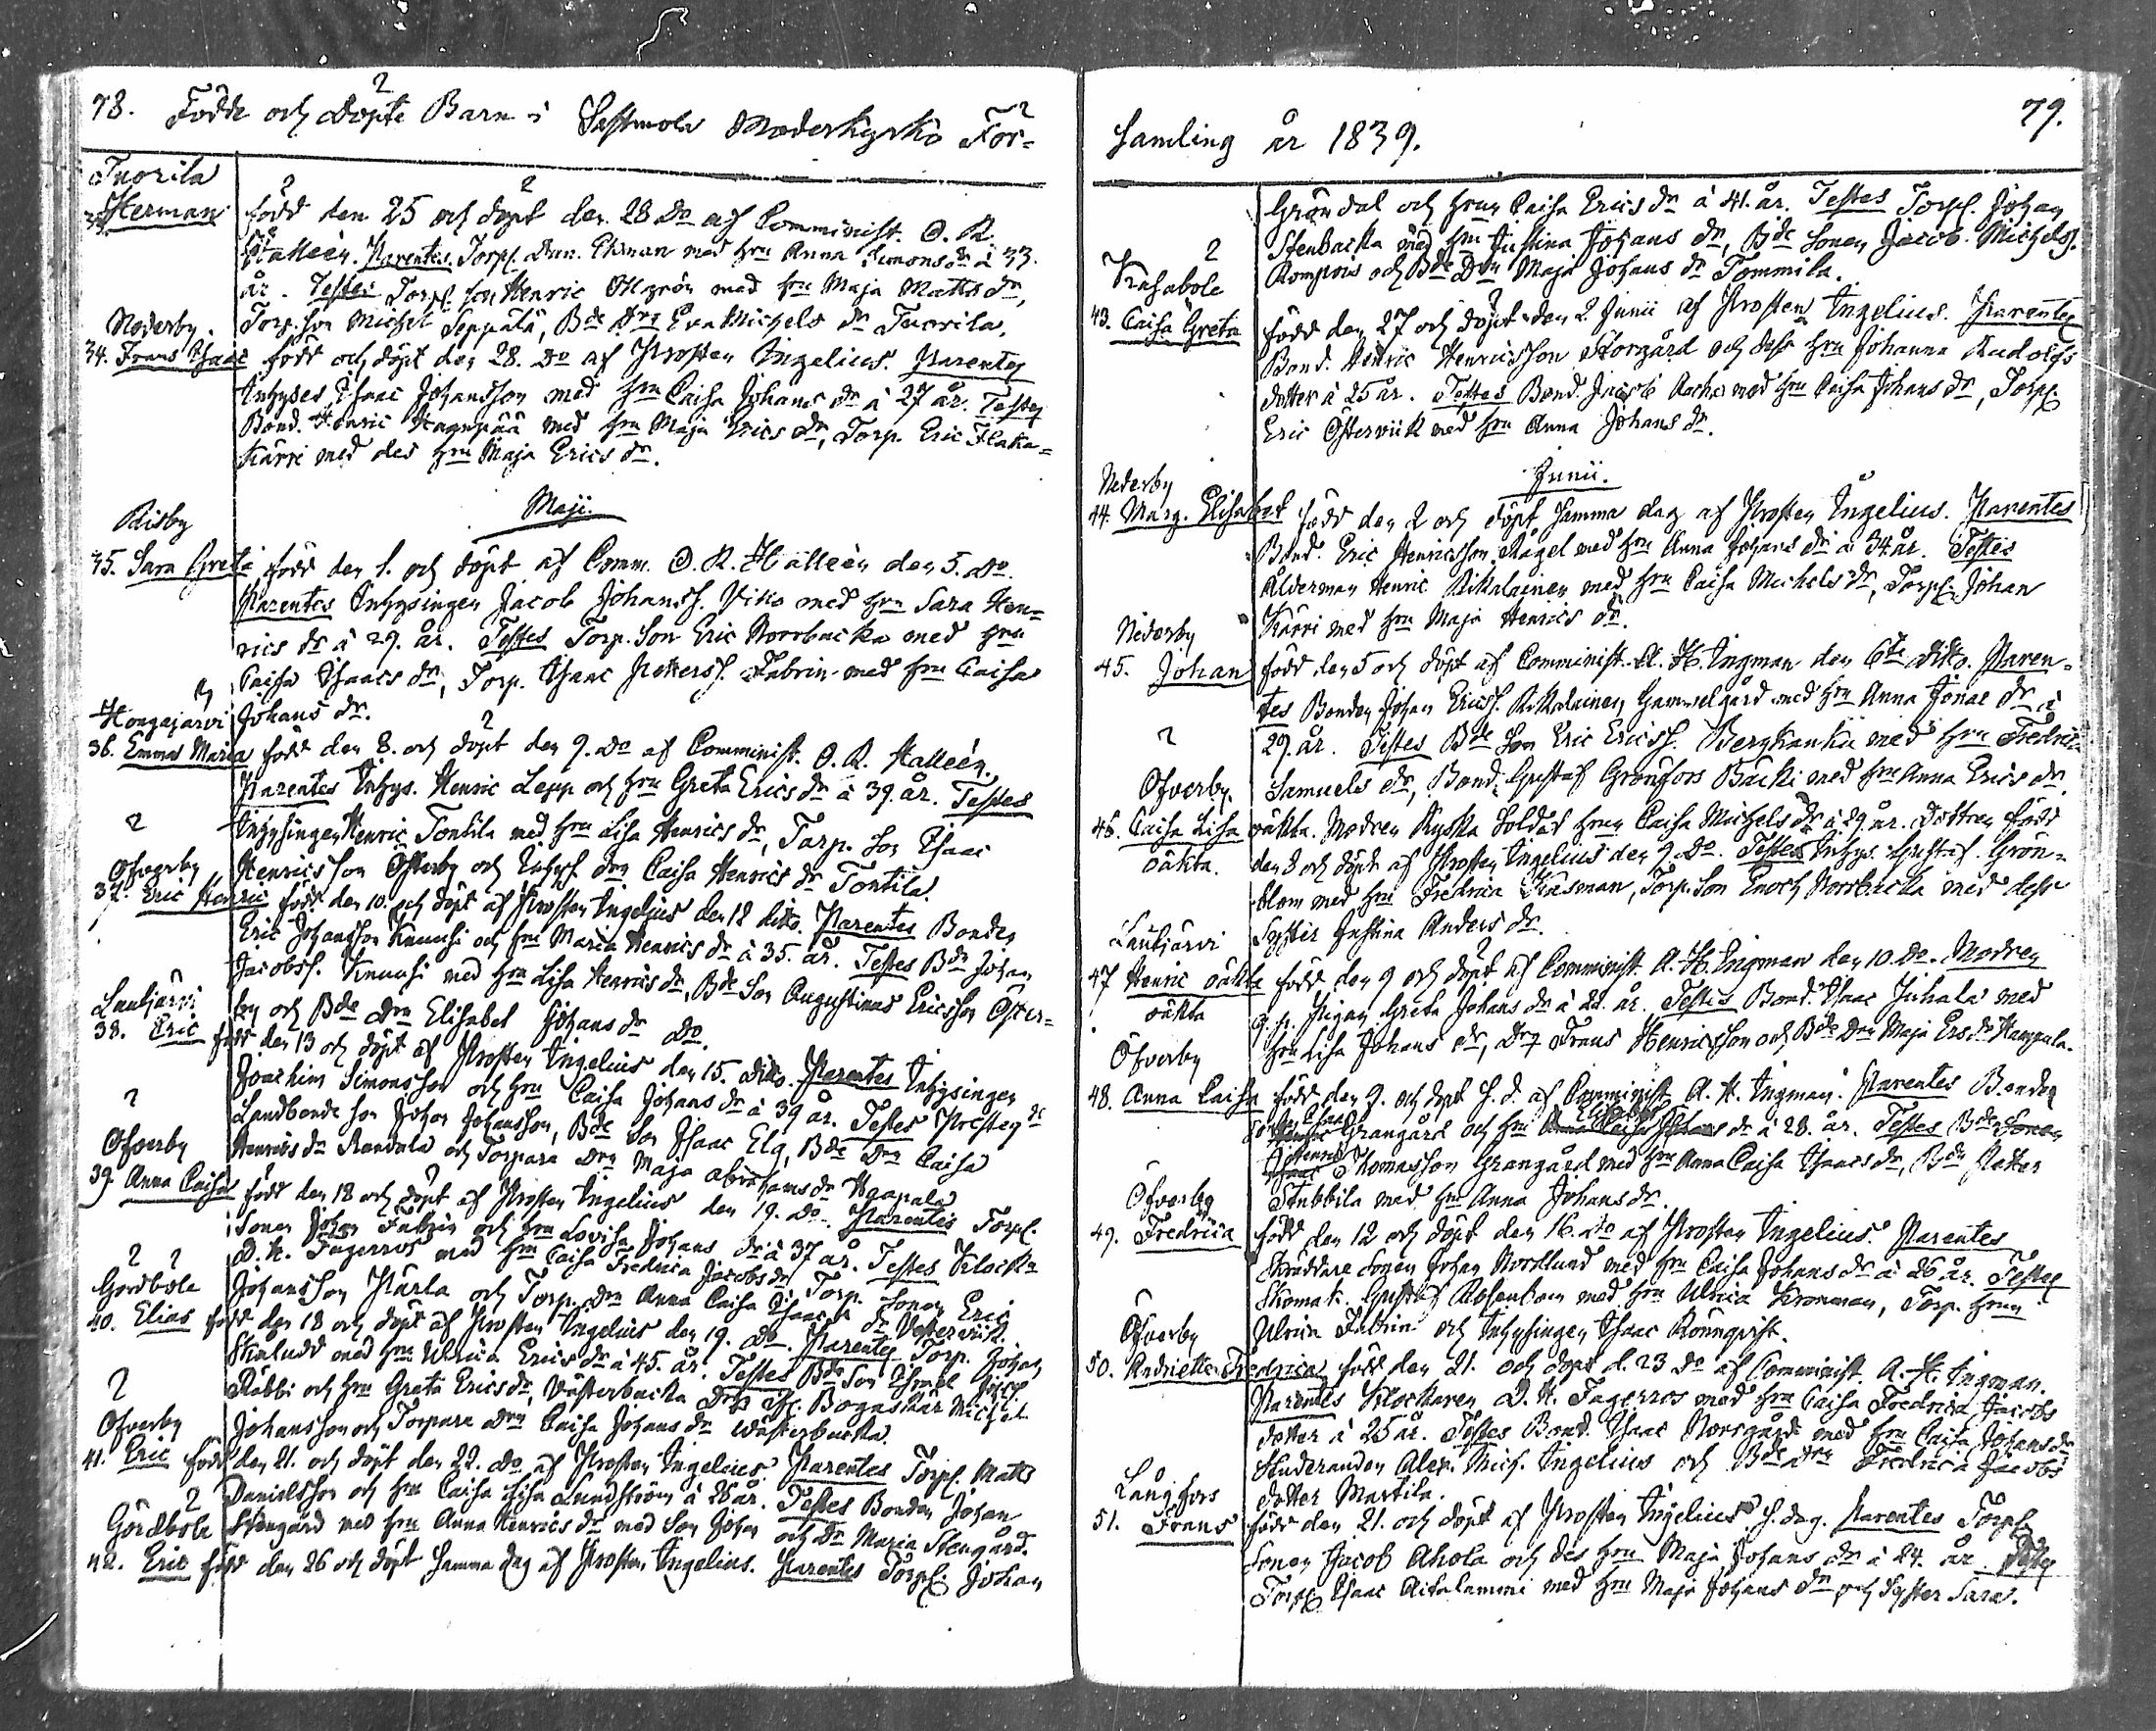 78. Födde och döpte Barn i Sastmola Moderkyrko För=
Tuorila
Herman född den 25 och döpt den 28 Do af Comminist. O. R.
Halleèn. Parentes Torp. Dan. Ekman med hru Anna Simonsdr à 33.
år. Testes Torp. son Henric Ekgrén med hru Maja Matts dr,
Torp. son Michel Seppälä, Bde Drn Eva Michels dr Tuorila.
Nederby.
34. Frans Isaac född och döpt den 28. Do af Prosten Ingelius. Parentes
Inhyses Isaac Johansson med hru Caisa Johans dr à 27 år. Testes
Bond. Henric Haganpää med hru Maja Erics dr, Torp. Eric Flaka=
Kärri med des hru Maja Erics dr.
Maji.
Risby
35. Sara Greta född den 1. och döpt af Comm. O. R. Halleèn den 5. Do.
Parentes Inhysingen Jacob Johanss. Viks med hru Sara Hen=
rics dr à 29. år. Testes Torp. Son Eric Norrbacka med hru
Caisa Isaacs dr, Torp. Isaac Petterss. Fabrin med hru Caisa
Johans dr.
Hongajärvi
36. Emma Maria född den 8. och döpt den 9. Do af Comminist. O. R. Halleèn.
Parentes Inhys. Henric Lepp och hru Greta Erics dr à 39. år. Testes
Inhysingen Henric Tontila med hru Lisa Henrics dr, Torp. son Isaac
Henricsson Österby och Inhys drn Caisa Henrics dr Tontila.
Öfverby
37. Eric Henric född den 10. och döpt af Prosten Ingelius den 12 ditto. Parentes Bonden
Eric Johansson Knuusi och hru Maria Henrics dr à 35. år. Testes Bdn Johan
Jacobss. Knuusi med hru Lisa Henrics dr, Bde Son Augustinus Ericsson Öster=
by och Bde Drn Elisabet Johans dr Do.
Lautjärvi
38. Eric född den 13 och döpt af Prosten Ingelius den 15. ditto. Parentes Inhysingen
Joachim Simonsson och hru Caisa Johans dr à 39 år. Testes Prosten
Landbonde son Johan Johansson, Bde Son Isaac Elg, Bde Drn Caisa
Henrics dr Randala och Torpare Drn Maja Abrahams dr Haapala
Öfverby
39. Anna Caisa född den 18 och döpt af Prosten Ingelius den 19. Do. Parentes Torp.
Sonen Johan Fabrin och hru Lovisa Johans dr à 37 år. Testes Klock
D. H. Fagerros med hru Caisa Fredrica Jacobs dr Torp. Sonen Eric
Johansson Pärla och Torp. drn Anna Caisa Isaacs dr Vesterviik.
Gårdböle
40. Elias född den 18 och döpt af Prosten Ingelius den 19. Do. Parentes Torp. Johan
Skaludd med hru Ulrica Erics dr à 45. år. Testes Bde Son Israel
Räbbi och hru Greta Erics dr, Västerbacka Bogaskär Michel
Johansson och Torpare Drn Caisa Johans dr Wästerbacka.
Öfverby
41. Eric född den 21. och döpt den 22. Do af Prosten Ingelius. Parentes Torp. Matts
Danielsson och hru Caisa Lisa Lundström à 26 år. Testes Bonden Johan
Stengård med hru Anna Henrics dr med Son Johan och Dr Maria Stengård.
Gårdböle
42. Eric född den 26 och döpt samma dag af Prosten Ingelius. Parentes Torp. Johan
79.
Samling år 1839.
Gröndal och hrun Caisa Erics dr à 41. år. Testes Torp. Johan
Stenbacka med hru Justina Johans dr, Bde Sonen Jacob Michelss.
Rompois och Bde Drn Maja Johans dr Tommila.
Kasaböle
43. Caisa Greta född den 27 och döpt den 2 Junii af Prosten Ingelius. Parentes
Bond. Henric Henricsson Storgård och dess hru Johanna Rudolfs
dotter à 25 år. Testes Bond. Jacob med hru Caisa Johans dr, Torp.
Eric Österviik med hru Anna Johans dr.
Junii.
Nederby
44. Marg. Elisabet född den 2 och döpt samma dag af Prosten Ingelius. Parentes
Bond. Eric Henricsson Rågel med hru Anna Johans dr à 34 år. Testes
Ålderman Henric Rikalainen med hru Caisa Michels dr, Torp. Johan
Kärri med hru Maja Henrics dr.
Nederby
45. Johan född den 5 och döpt af Comminist. A. H. Ingman den 6te ditto. Paren=
tes Bonden Johan Ericss. Rikalainen Gammelgård med hru Anna Jonae dr à
29. år. Testes Bde Son Eric Ericss. Bergkankii med hru Fredrica
Samuels dr, Bond. Gustaf Grönfors Backi med hru Anna Erics dr.
Öfverby.
46. Caisa Lisa oäkta. Modren Ryska Soldat hrun Caisa Michels dr à 29. år. Dottren född
oäkta. den 8 och döpt af Prosten Ingelius den 9. Do. Testes Inhys. Gustaf Grön=
blom med hru Fredrica Råsman, Torp. Son Enoch Norrbacka med dess
Syster Justina Anders dr.
Lautjärvi
47 Henric oäkta född den 9 och döpt af Comminist. A. H. Ingman den 10. Do. Modren
oäkta Pigan Greta Johans dr à 22. år. Testes Bond. Isaac Juhala med
hru Lisa Johans dr, Frans Henricsson och Bde Drn Maja Ers. dr Hampula.
Öfverby
48. Anna Caisa född den 9. och döpt s. d. af Comminist. A. H. Ingman. Parentes Bonden
Isaac Grangård och hru Elisabet dr à 28. år. Testes Bde Sonen
Henric Thomasson Grangård med hru Anna Caisa Isaacs dr, Bdn Petter
Stubbila med hru Anna Johans dr.
Öfverby
49. Fredrica född den 12 och döpt den 16. Do af Prosten Ingelius. Parentes
Skräddare Sonen Johan Nordlund med hru Caisa Johans dr à 26 år. Testes
Skomak. Gustaf Rosenbom med hru Ulrica Kronman, Torp. hrun
Ulrica Fabrin och Inhysingen Isaac Rönnqvist.
Öfverby
50. Andriette Fredrica född den 21. och döpt d. 23 Do af Comminist. A. H. Ingman.
Parentes Klockaren D. H. Fagerros med hru Caisa Fredrica Jacobs
dotter à 25 år. Testes Bond. Isaac Norrgård med hru Caisa Johans dr
Studeranden Alex. Mich. Ingelius och Bde drn Fredrica Jacobs
dotter Martila.
Långfors
51. Frans född den 21. och döpt af Prosten Ingelius s. dag. Parentes Torp.
Sonen Jacob Ahola och des hru Maja Johans dr à 24. år. Testes
Torp. Isaac Aitalammi med hru Maja Johans dr och Syster Sara.